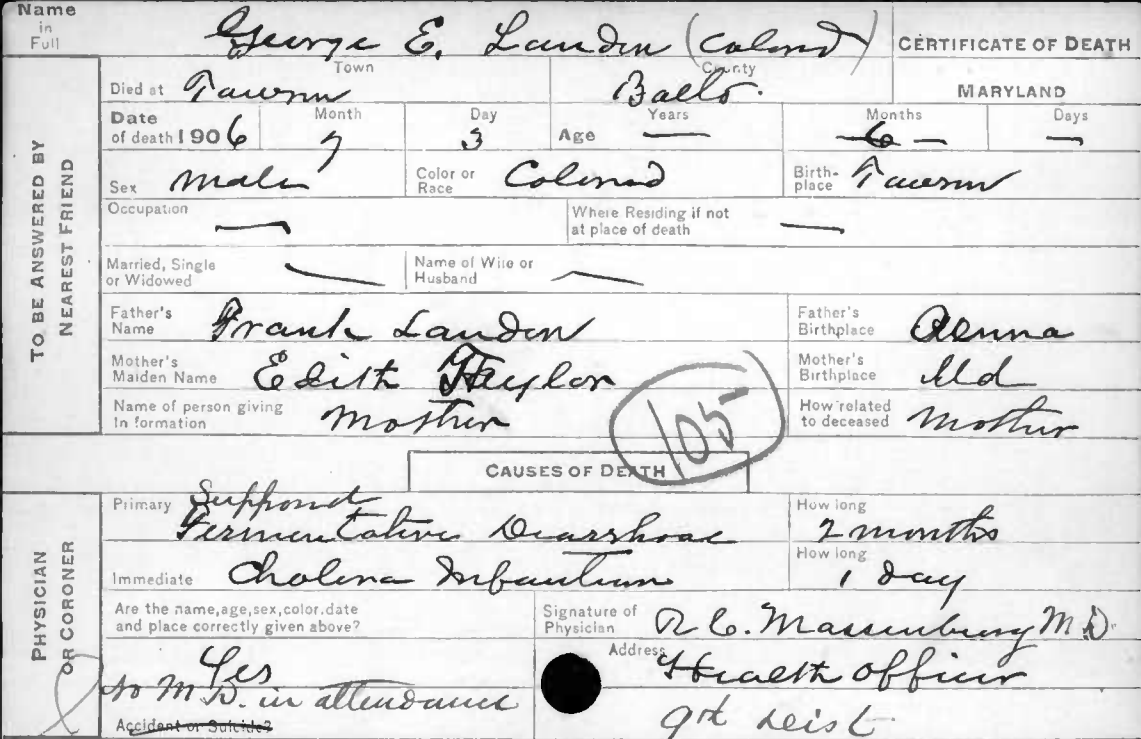 Name in Full George E. Landin (Colored) CERTIFICATE OF DEATH
TO BE ANSWERED BY NEAREST FRIEND
Died at Town Towson County Balto. MARYLAND
Date of death 1906 Month 7 Day 3 Age Years — Months 6 — Days —
Sex Male Color or Race Colored Birthplace Towson
Occupation — Where Residing if not at place of death —
Married, Single or Widowed — Name of Wife or Husband —
Father's Name Frank Landin Father's Birthplace Penna
Mother's Maiden Name Edith Taylor Mother's Birthplace Md
Name of person giving Information Mother How related to deceased Mother
105
CAUSES OF DEATH
PHYSICIAN OR CORONER
Primary Supposed Fermentative Diarrhoae How long 2 months
Immediate Cholera Infantum How long 1 day
Are the name, age, sex, color, date and place correctly given above? Yes Signature of Physician R. C. Massenburg M.D.
No M.D. in attendance Address Health Officer
Accident or Suicide? 9th Dist